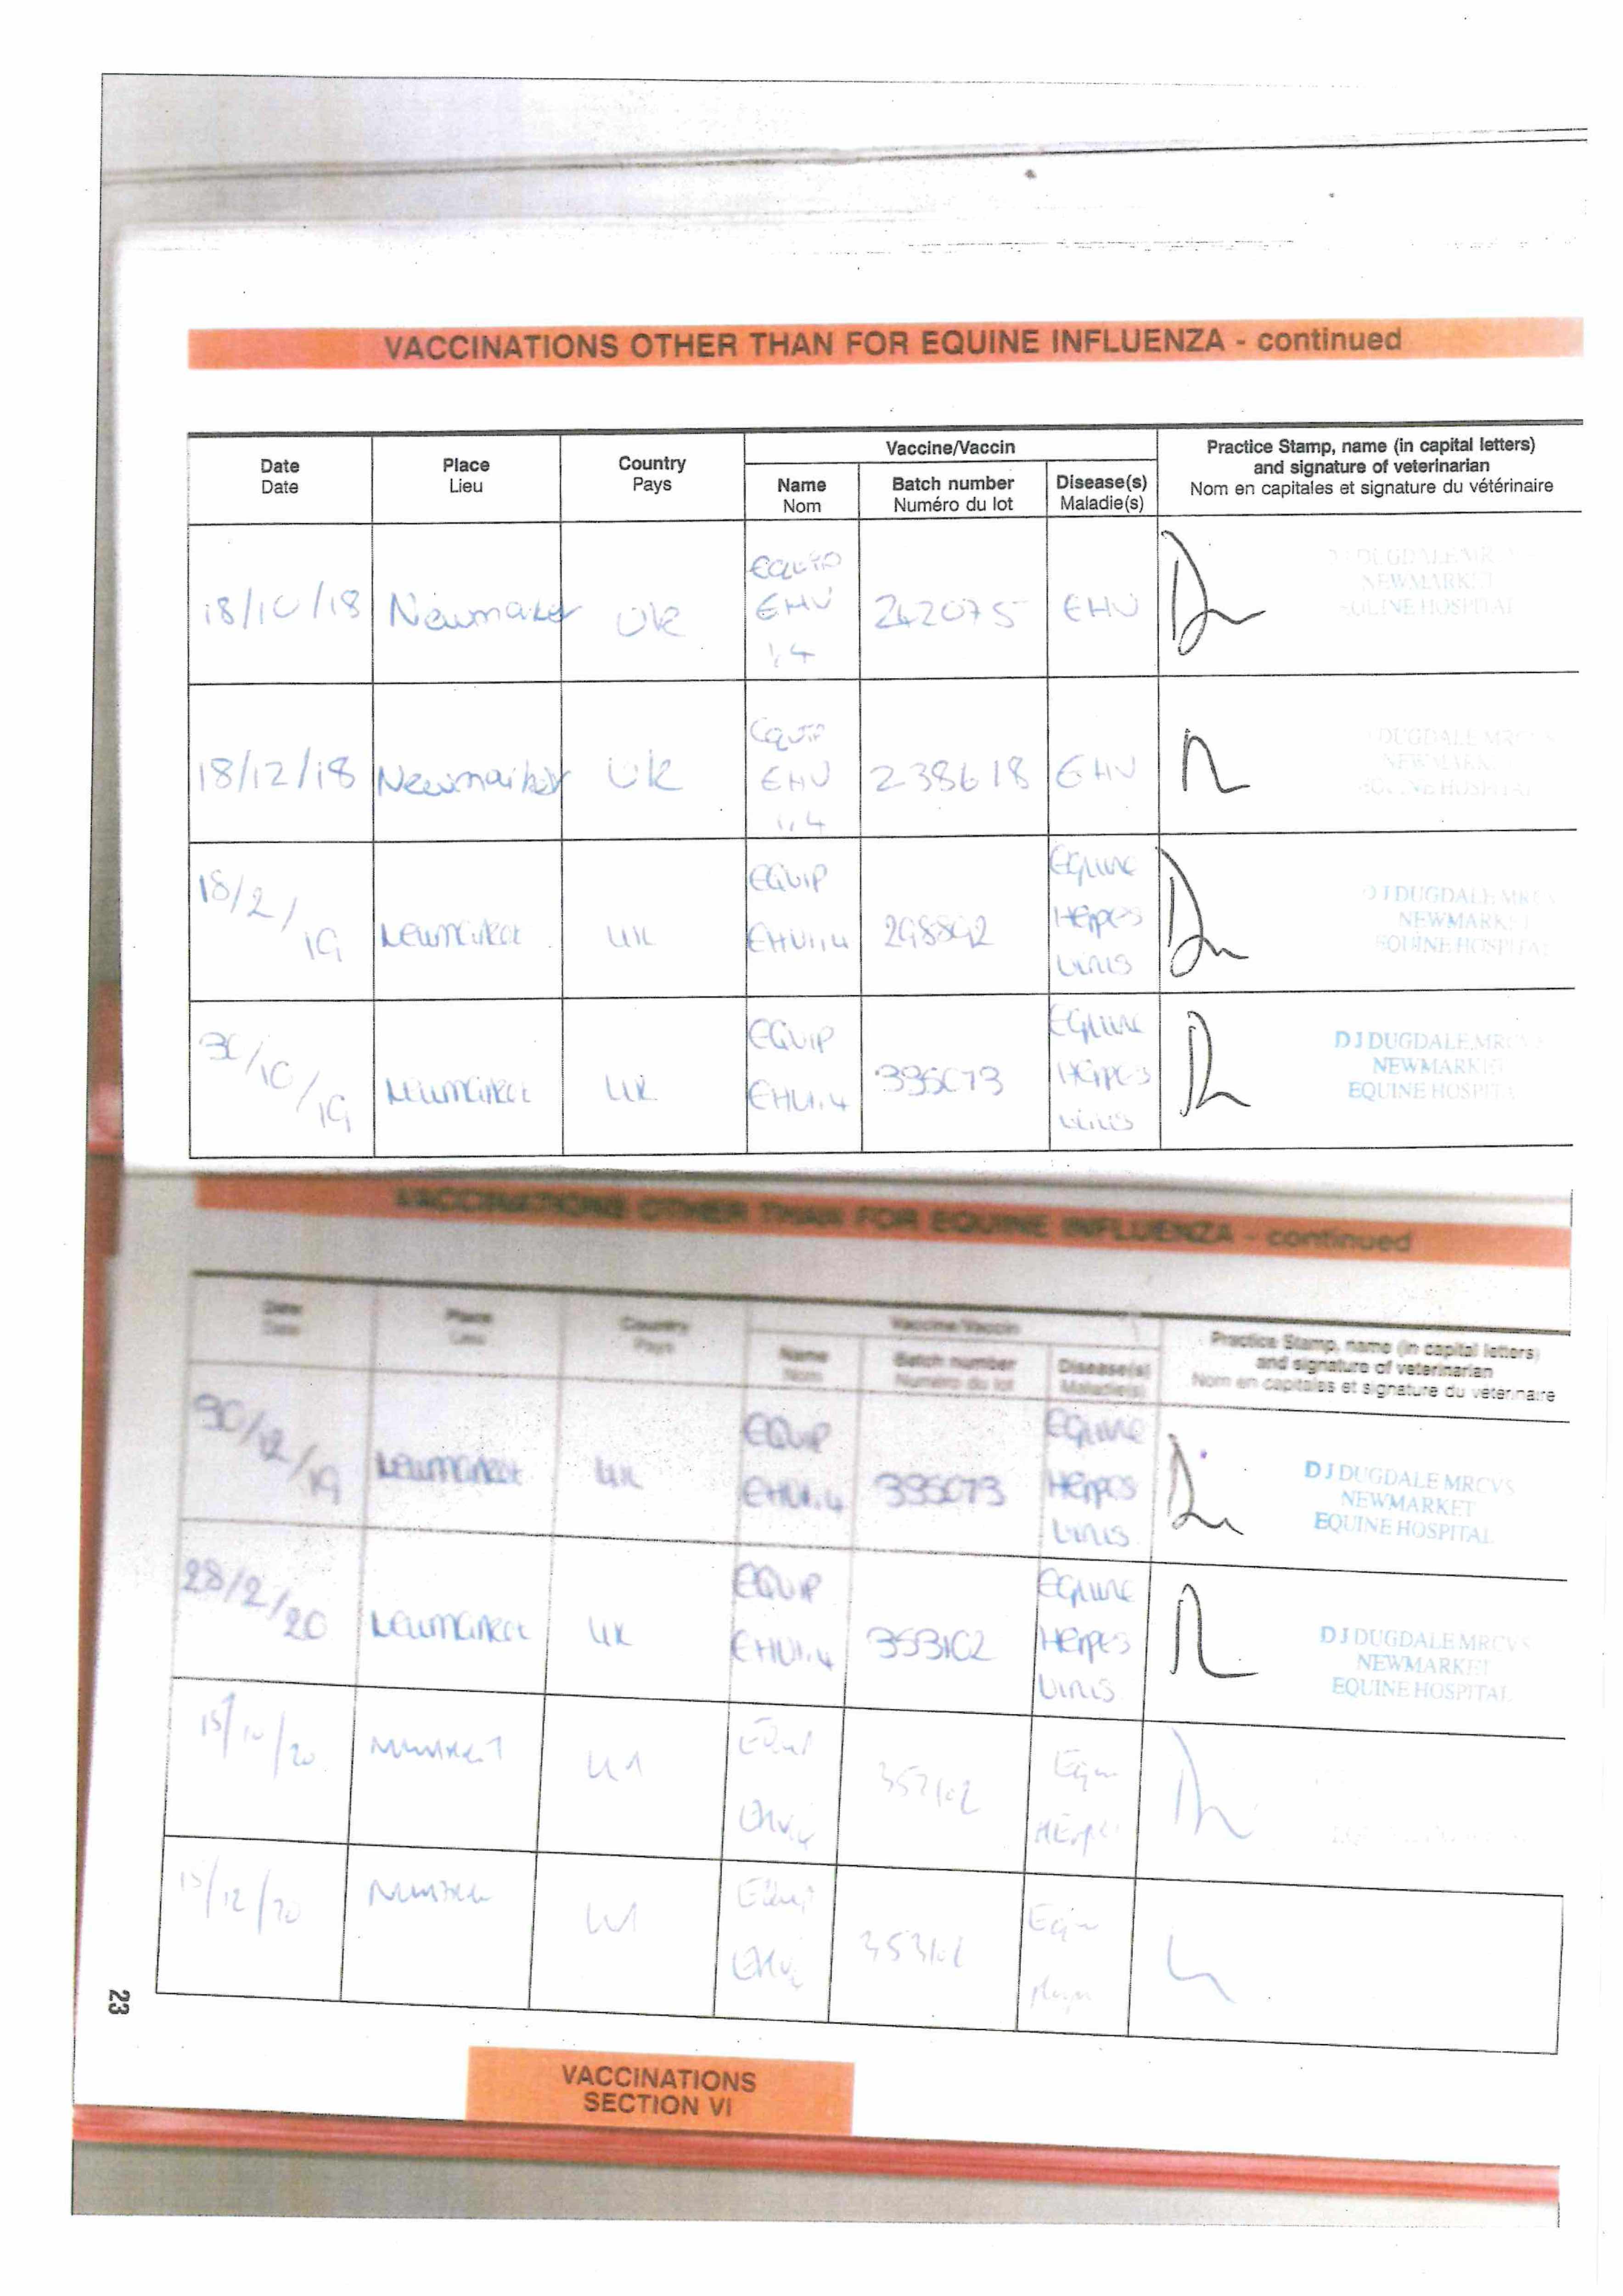 VACCINATIONS OTHER THAN FOR EQUINE INFLUENZA - continued
Date
Date
Place
Lieu
Country
Pays
Vaccine/Vaccin
Name
Nom
Batch number
Numéro du lot
Disease(s)
Maladie(s)
Practice Stamp, name (in capital letters)
and signature of veterinarian
Nom en capitales et signature du vétérinaire
18/10/18 Newmarket UK
EQUIP
EHV
1,4
242075 EHV
DJ DUGDALE MR
NEWMARKET
EQUINE HOSPITAL
18/12/18 Newmarket UK
Equip
EHV
1,4
238618 EHV
DUGDALE MRC
NEWMARK
EQUINE HOSPITAL
18/2/19 Newmarket UK
EQUIP
EHV1,4
298892
EQUINE
Herpes
Virus
DJ DUGDALE MRC
NEWMARKET
EQUINE HOSPITAL
30/10/19 Newmarket UK
EQUIP
EHV1,4
395073
EQUINE
Herpes
Virus
D J DUGDALE MRCV
NEWMARKET
EQUINE HOSPITA
VACCINATIONS OTHER THAN FOR EQUINE INFLUENZA - continued
Date
Date
Place
Lieu
Country
Pays
Vaccine/Vaccin
Name
Nom
Batch number
Numéro du lot
Disease(s)
Maladie(s)
Practice Stamp, name (in capital letters)
and signature of veterinarian
Nom en capitales et signature du veterinaire
30/12/19 Newmarket UK
EQUIP
EHV1,4
395073
EQUINE
Herpes
Virus
D J DUGDALE MRCVS
NEWMARKET
EQUINE HOSPITAL
28/2/20 Newmarket UK
EQUIP
EHV1,4
353102
EQUINE
Herpes
Virus
D J DUGDALE MRCVS
NEWMARKET
EQUINE HOSPITAL
15/10/20
Herpes
15/12/20
353102
23
VACCINATIONS
SECTION VI